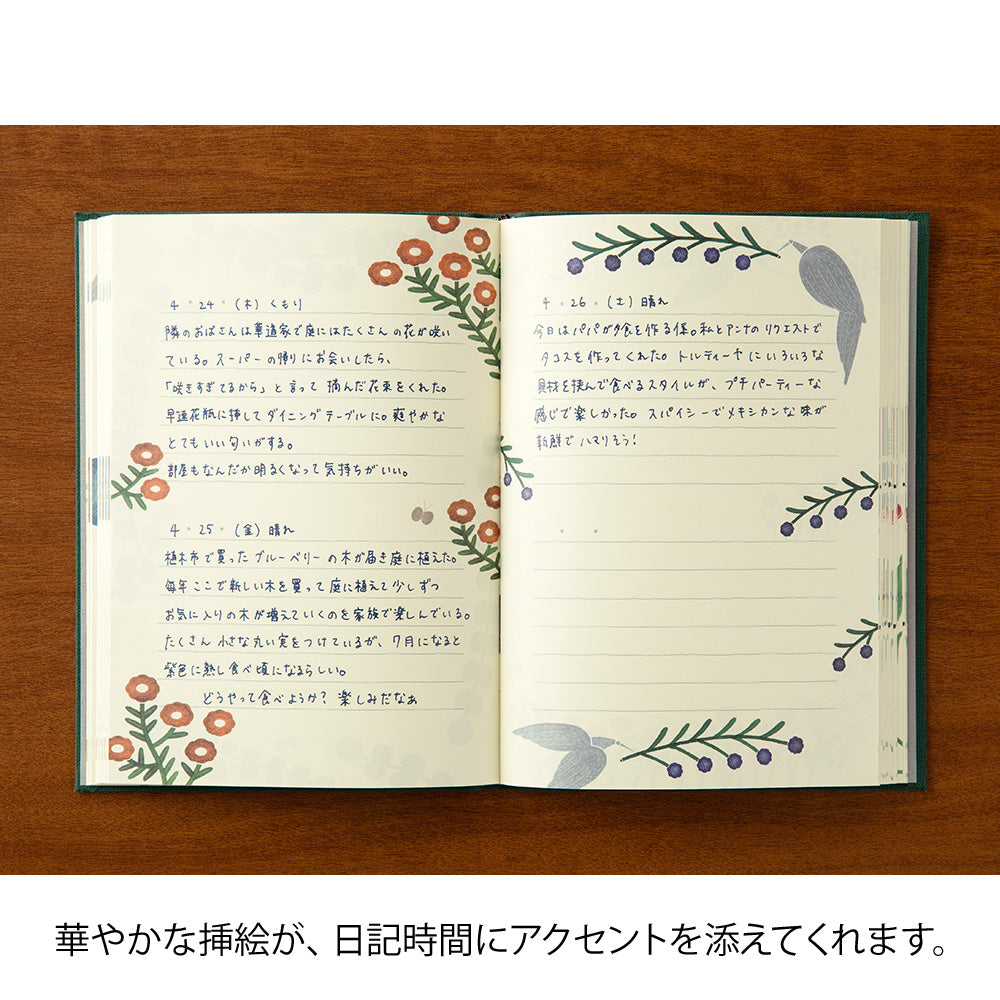 4・24・(木) くもり
隣のおばさんは草道家で庭にはたくさんの花が咲い
ている。スーパーの帰りにお会いしたら、
「咲きすぎてるから」と言って 摘んだ花束をくれた。
早速花瓶に挿してダイニングテーブルに。爽やかな
とてもいい匂いがする。
部屋もなんだか明るくなって気持ちがいい。
4・25・(金) 晴れ
植木市で買ったブルーベリーの木が届き庭に植えた。
毎年ここで新しい木を買って庭に植えて少しずつ
お気に入りの木が増えていくのを家族で楽しんでいる。
たくさん小さな丸い実をつけているが、7月になると
紫色に熟し食べ頃になるらしい。
どうやって食べようか? 楽しみだなぁ
4・26・(土) 晴れ
今日はパパが夕食を作る係。私とアンナのリクエストで
タコスを作ってくれた。トルティーヤにいろいろな
具材を挟んで食べるスタイルが、プチパーティーな
感じで楽しかった。スパイシーでメキシカンな味が
新鮮でハマりそう!
華やかな挿絵が、日記時間にアクセントを添えてくれます。